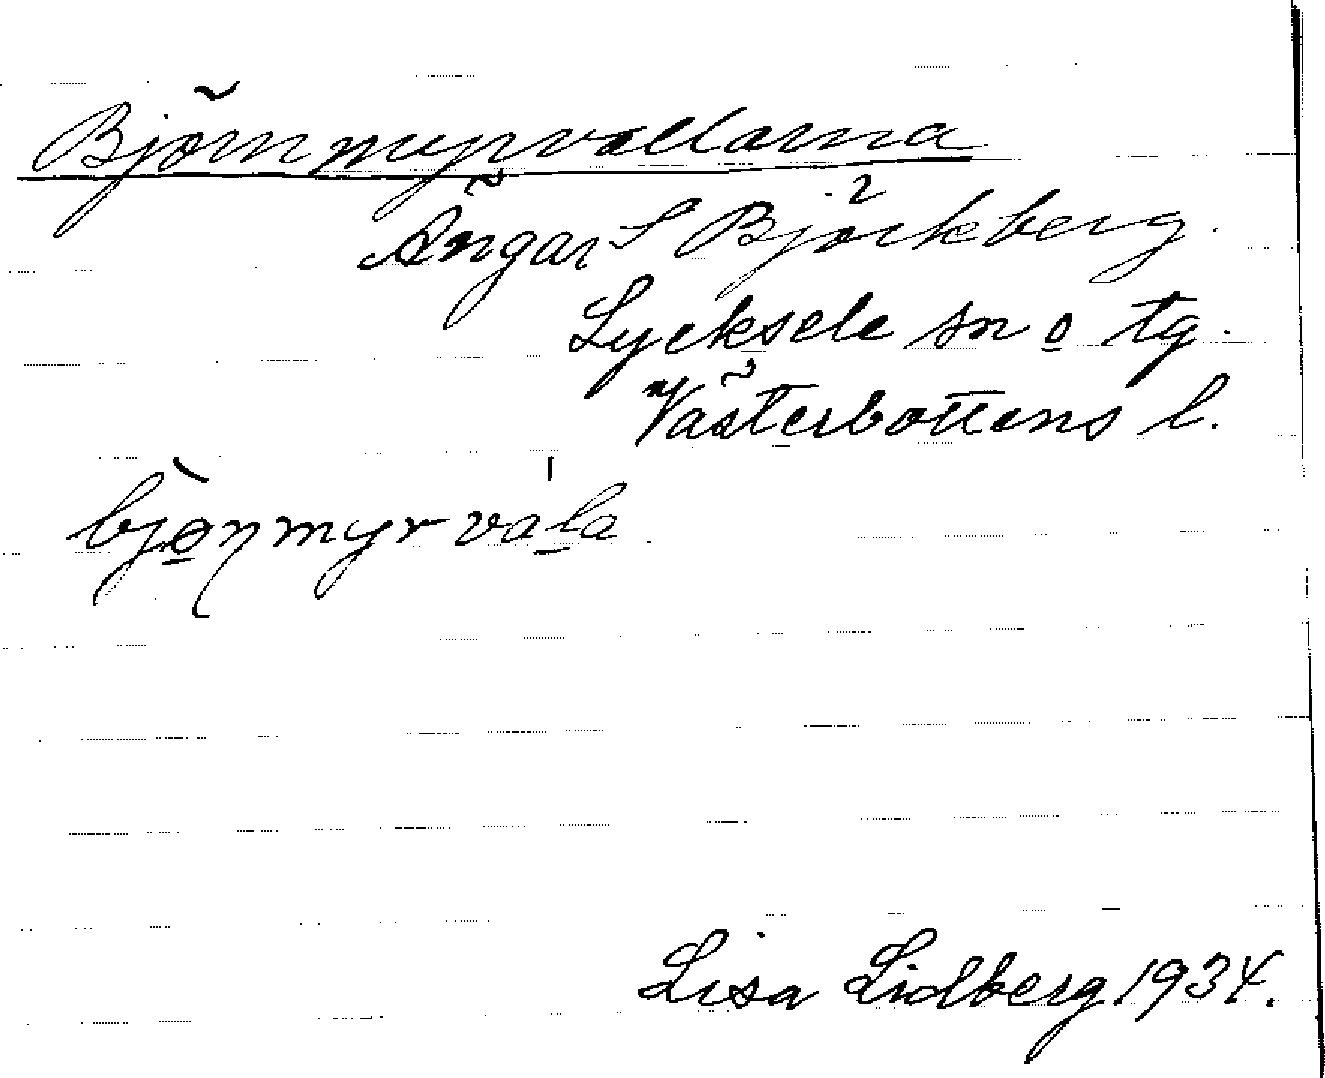 Björnmyrvallarna
Ängar S Björkberg.
Lycksele sn o tg.
Västerbottens l.
bjò̠ŋmyrvála̠
Lisa Lidberg 1934.